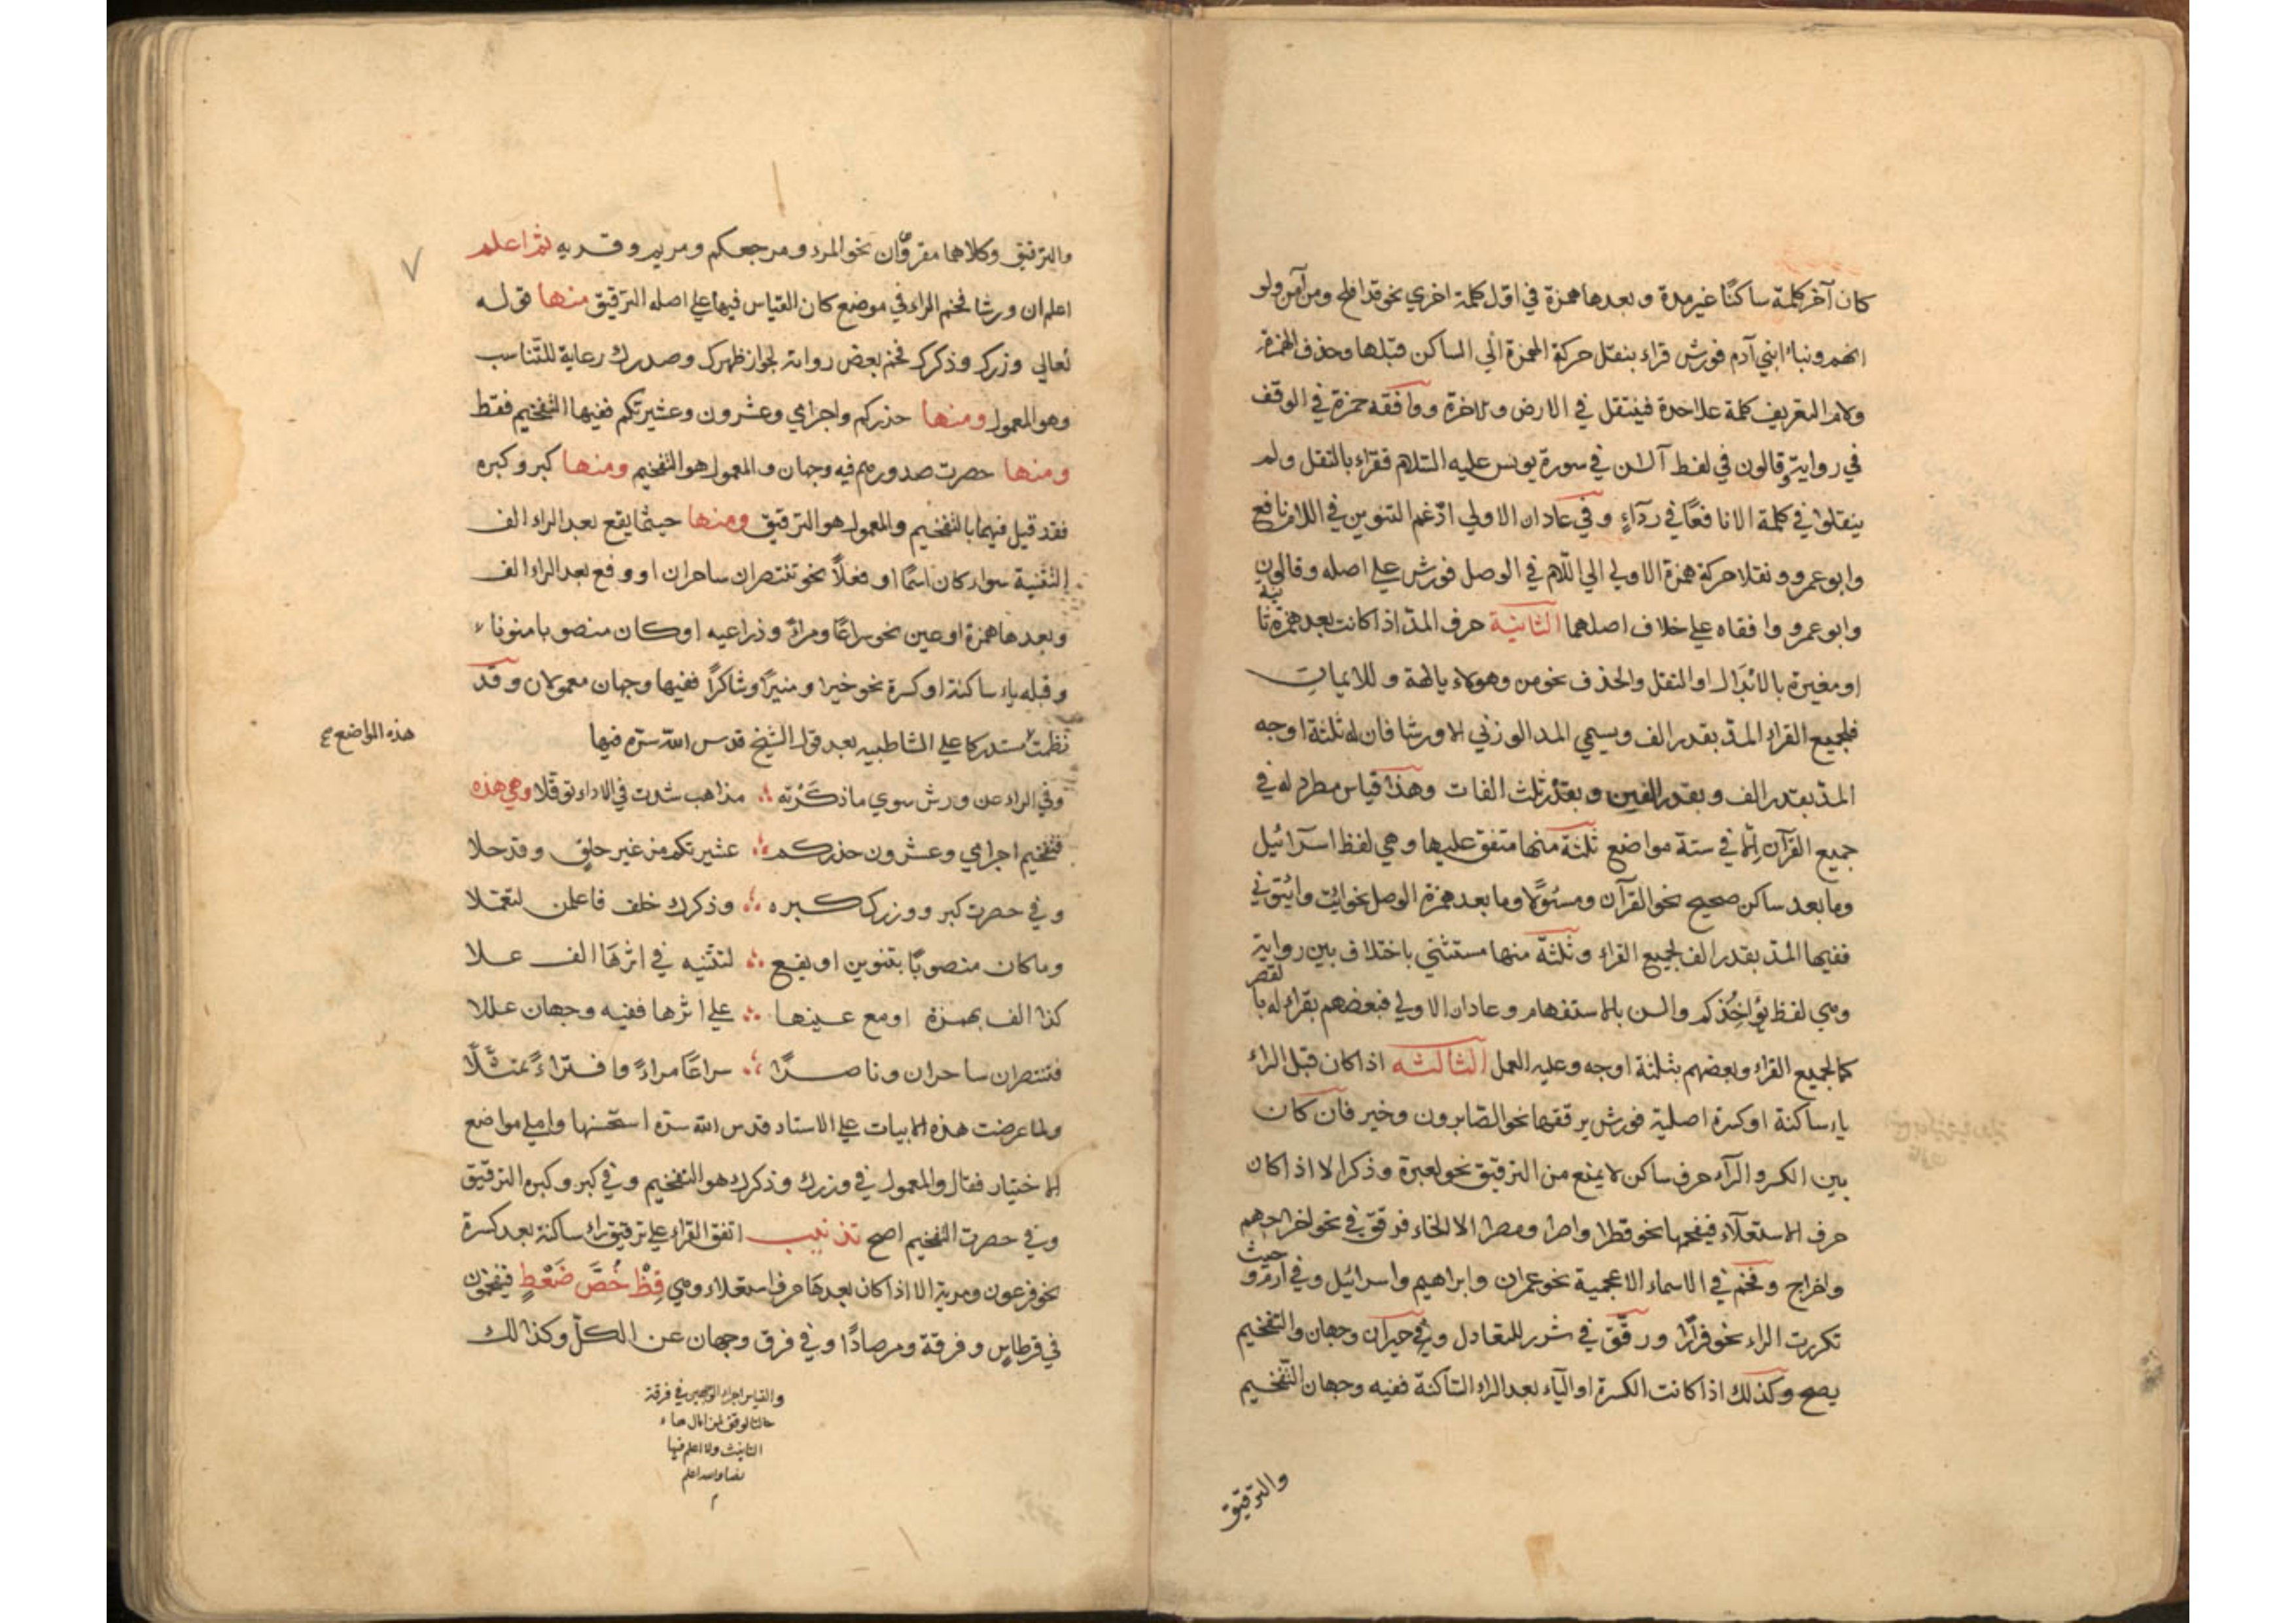 كان آخر كلمة ساكنًا غير مدة وبعدها همزة في اول كلمة اخري نحو قد افلح ومن آمن ولو
انهم ونبأ ابني آدم فورش قراء بنقل حركة الهمزة الي الساكن قبلها وحذف الهمزة
ولام التعريف كلمة علاحدة فينتقل في الارض والاخرة ووافقه حمزة في الوقف
في رواية وقالون في لفظ آلـٰن في سورة يونس عليه السلام فقراء بالنقل ولم
ينقلوا في كلمة الا نافعًا في ردآءٍ وفي عادان الاولي ادّغم التنوين في اللام نافع
وابو عمرو ونقلا حركة همزة الاولي الي اللّام في الوصل فورش علي اصله وقالون
وابو عمرو وافقاه علي خلاف اصلهما الثانية حرف المدّ اذا كانت بعد همزة ثابتة
او مغيرة بالابدال او النقل والحذف نحو من وهؤلاء يالهة وللايمان
فلجميع القراء المدّ بقدر الف ويسمي المد الوزني الا ورشا فان له ثلثة اوجه
المدّ بقدر الف وبقدر الفين وبقدر ثلث الفات وهذا قياس مطرد له في
جميع القرآن الّا في ستة مواضع ثلثة منها متفق عليها وهي لفظ اسرآئيل
وما بعد ساكن صحيح نحو القرآن ومسئولًا وما بعد همزة الوصل نحو ائت وائتوني
ففيها المدّ بقدر الف لجميع القراء وثلثة منها مستثني باختلاف بين رواية
وهي لفظ يؤاخذكم والـن بالاستفهام وعادان الاولي فبعضهم يقراء له بالقصر
كالجميع القراء وبعضهم بثلثة اوجه وعليه العمل الثالثه اذا كان قبل الراء
ياء ساكنة او كسرة اصلية فورش يرققها نحو الصابرون وخير فان كان
بين الكسر والرآء حرف ساكن لا يمنع من الترقيق نحو لعبرة وذكرا الا اذا كان
حرف الاستعلآء فيفخمها نحو قطرا واصرا ومصرا الا الخاء فرقق في نحو اخراجهم
واخراج وفخم في الاسماء الاعجمية نحو عمران وابراهيم واسرائيل وفي ارم وحيث
تكررت الراء نحو فرارًا ورقّق في شرر للتعادل وفي حيران وجهان والتفخيم
يصح وكذلك اذا كانت الكسرة او اليآء بعد الراء الساكنة ففيه وجهان التفخيم
والترقيق
والترقيق وكلاهما مقروّان نحو المرء ومرجعكم ومريم وقريه ثمّ اعلم
اعلم ان ورشا فخم الراء في موضع كان القياس فيها علي اصله الترقيق منها قوله
تعالي وزرك وذكرك فخم بعض رواته لجواز ظهرك وصدرك رعاية للتّناسب
وهو المعمول ومنها حذركم واجرامي وعشرون وعشيرتكم ففيها التفخيم فقط
ومنها حصرت صدورهم فيه وجهان والمعمول هو التفخيم ومنها كبر وكبره
فقد قيل فيهما بالتفخيم والمعمول هو الترقيق ومنها حيثما يقع بعد الراء الف
التثنية سواء كان اسمًا او فعلًا نحو تنتصران ساحران او وقع بعد الراء الف
وبعدها همزة او عين نحو سراعًا ومراءً وذراعيه او كان منصوبا منونا
وقبله ياء ساكنة او كسرة نحو خيرا ومنيرًا وشاكرًا ففيها وجهان معمولان وقد
نظمت مستدركا علي الشاطبيه بعد قول الشيخ قدس الله سرّه فيها
هذه المواضع صح
وفي الراء عن ورش سوي ما ذكرته ∴ مذاهب شذت في الاداء توقلا وهي هذه
فتفخيم اجرامي وعشرون حذركم ∴ عشيرتكم من غير خلف وقد حلا
وفي حصرت كبر ووزرك كبره ∴ وذكرك خلف فاعلمن لتعملا
وما كان منصوبًا بتنوين او يقع ∴ لتثنيه في اثرها الف علا
كذا الف بهمزة او مع عينها ∴ علي اثرها ففيه وجهان عللا
فتنتصران ساحران وناصرًا ∴ سراعًا مراءً وافتراءً تمثّلا
ولما عرضت هذه الابيات علي الاستاد قدس الله سرّه استحسنها واملي مواضع
الاختيار فقال والمعمول في وزرك وذكرك هو التفخيم وفي كبر وكبره الترقيق
وفي حصرت التفخيم اصح تذنيب اتفق القراء علي ترقيق راء ساكنة بعد كسرة
نحو فرعون ومرية الا اذا كان بعدها حرف استعلاء وهي قِظْ خُصَّ ضَغْطٍ فيفخمون
في قرطاس وفرقة ومرصادًا وفي فرق وجهان عن الكلّ وكذالك
والقياس اجراء الوجهين في فرقة
حالة الوقف لمن امال هاء
التانيث ولا اعلم فيها
نصا والله اعلم